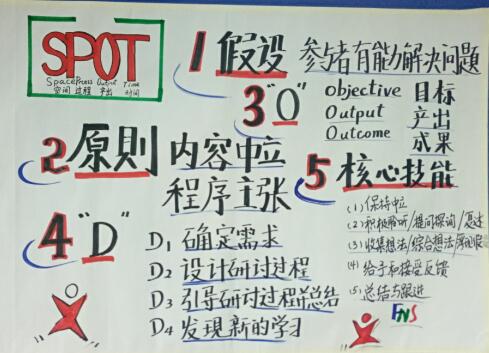 SPOT
Space Process Output Time
空间 过程 产出 时间
1 假设 参与者有能力解决问题
3 "O"
objective 目标
Output 产出
Outcome 成果
2 原则 内容中立
程序主张
4 "D"
D1 确定需求
D2 设计研讨过程
D3 引导研讨过程并总结
D4 发现新的学习
5 核心技能
(1) 保持中立
(2) 积极聆听/提问探询/复述
(3) 收集想法/综合想法/
(4) 给予和接受反馈
(5) 总结与跟进
FNS